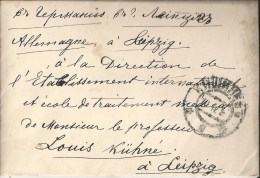 въ Германію, въ г. Лейпцигъ
Allemagne à Leipzig.
à la Direction de
l'Etablissement internat
et école de traitement médical
de Monsieur le professeur
Louis Kühné
à Leipzig